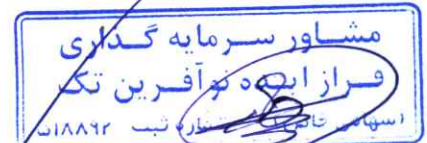 مشاور سرمایه گذاری
فراز ایده نوآفرین تک
(سهامی خاص) شماره ثبت ۱۸۸۹۲